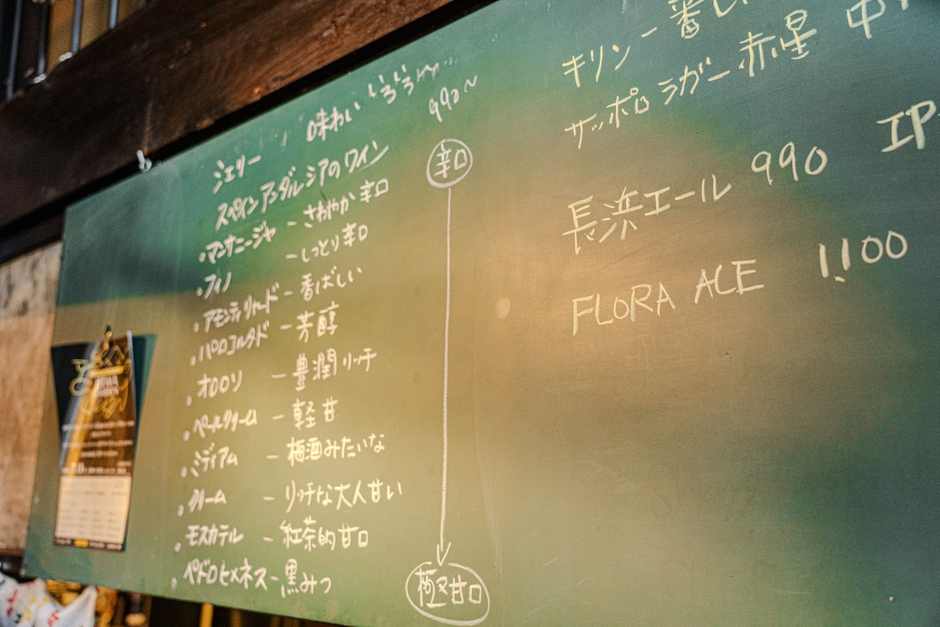 シェリー 味わいいろいろ 990〜
スペインアンダルシアのワイン
・マンサニージャ - さわやか辛口
・フィノ - しっとり辛口
・アモンティリャード - 香ばしい
・パロコルタド - 芳醇
・オロロソ - 豊潤リッチ
・ペールクリーム - 軽甘
・ミディアム - 梅酒みたいな
・クリーム - リッチな大人甘い
・モスカテル - 紅茶的甘口
・ペドロヒメネス - 黒みつ
辛口
極甘口
キリン一番し
サッポロラガー赤星 中
長浜エール 990 IP
FLORA ACE 1,100